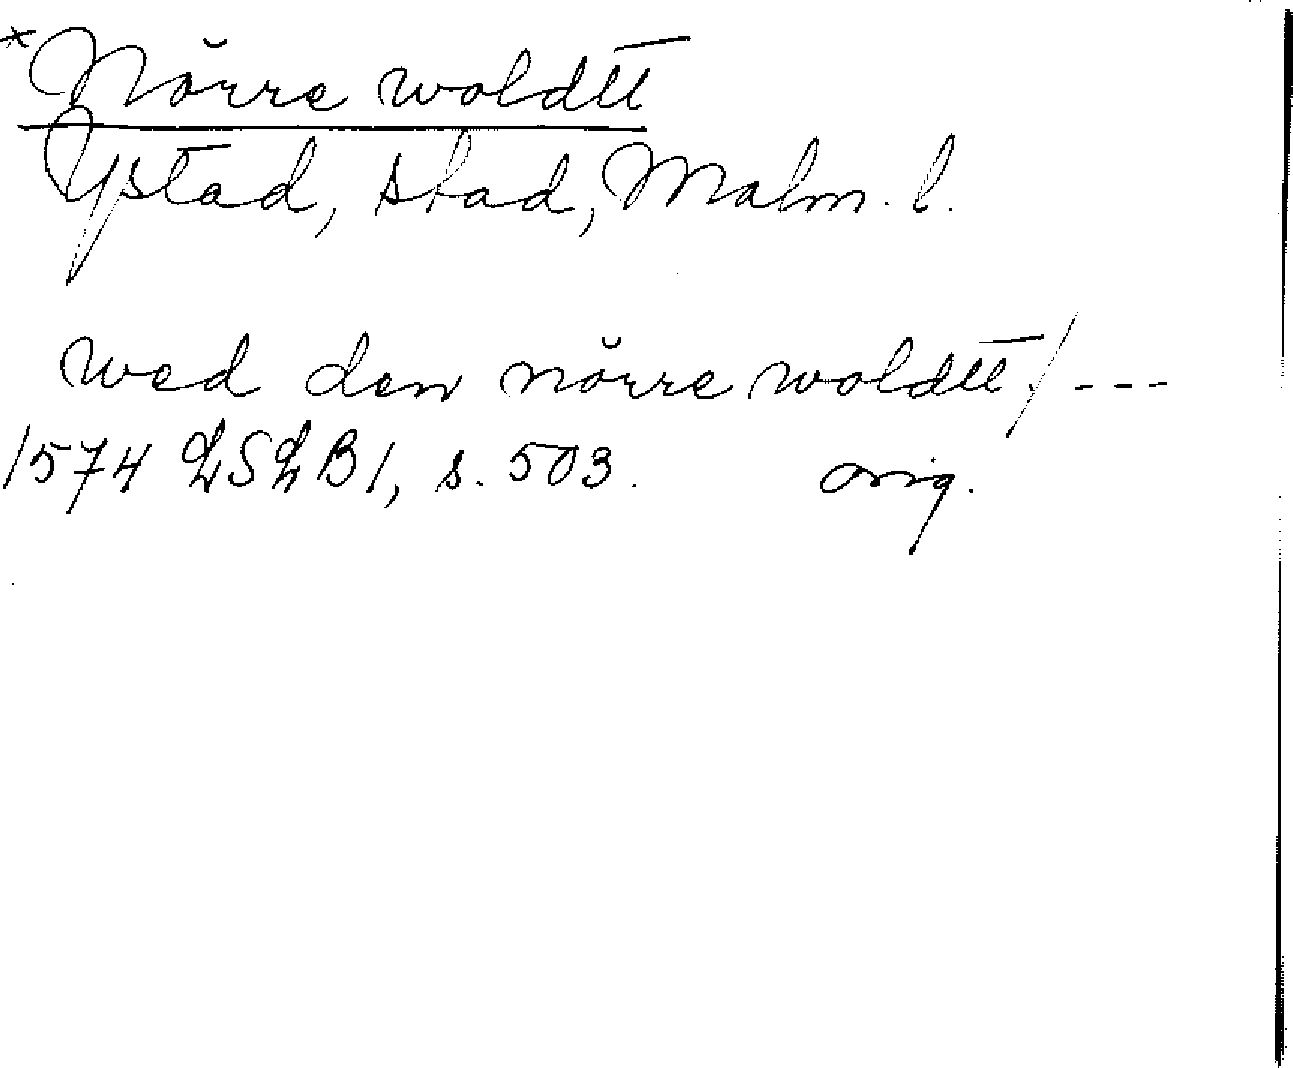 *Nŏrre woldtt
Ystad, stad, Malm. l.
wed den nŏrre woldtt/---
1574 LSLB1, s. 503. orig.